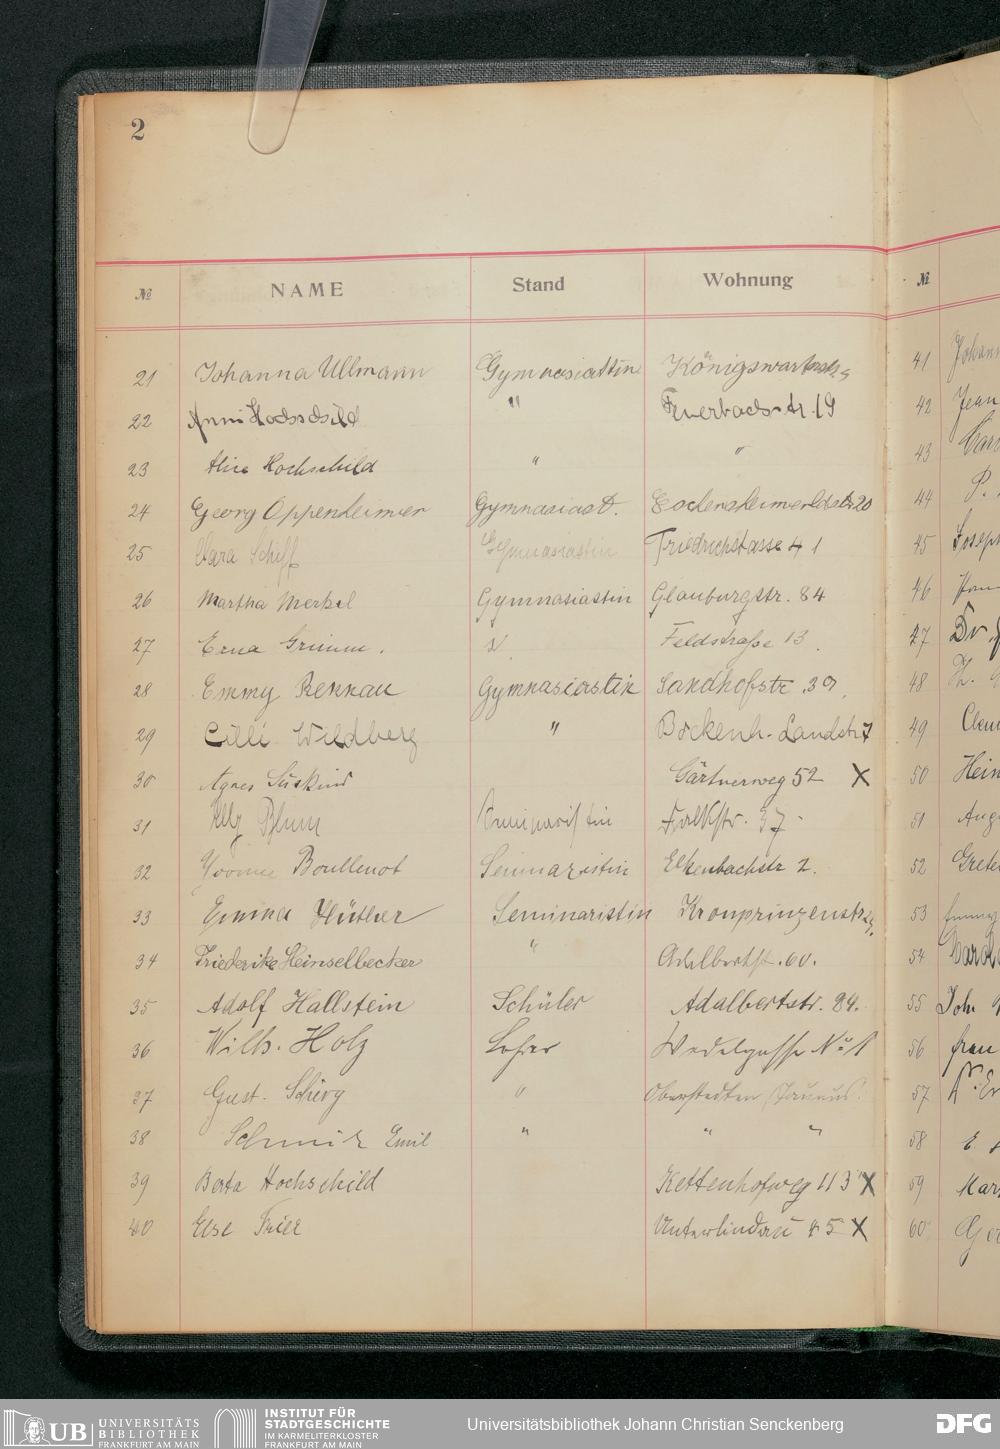 2
№ NAME Stand Wohnung
21 Johanna Ullmann Gymnasiastin
22 Anni Hochschild " Feuerbachstr. 19
23 Alice Hochschild " "
24 Georg Oppenheimer Gymnasiast.
25 Clara Schiff Gymnasiastin Friedrichstasse 41
26 Martha Merkel Gymnasiastin Glauburgstr. 84
27 Erna Grimm. Feldstraße 13.
28 Emmy Rennau Gymnasiastin Sandhofstr. 39.
29 Cilli Wildberg " Bockenh. Landstr 7
30 Agnes Süskind Gärtnerweg 52 X
31 Elly Blum Seminaristin Falkstr. 37.
32 Yvonne Boullenot Seminaristin Elkenbachstr 2.
33 Emma Hüther Seminaristin Kronprinzenstr
34 Friederike Heinselbecker " Adalbertstr. 60.
35 Adolf Hallstein Schüler Adalbertstr. 84.
36 Wilh. Holz Lehrer Wedelgasse No 1
37 Gust. " Oberstedten Taunus.
38 Schmidt Emil " " "
39 Berta Hochschild Kettenhofweg 113 X
40 Else Frier Unterlindau 45 X
№
41 Johann
42 Jean
43
44 P.
45 Joseph
46
47 Dr.
48
49 Clem
50 Hein
51 Aug
52 Grete
53 Emmy
54 Carol
55 Joh
56 frau
57
58 E.
59 Mar
60 Geo
UB UNIVERSITÄTS
BIBLIOTHEK
FRANKFURT AM MAIN
INSTITUT FÜR
STADTGESCHICHTE
IM KARMELITERKLOSTER
FRANKFURT AM MAIN
Universitätsbibliothek Johann Christian Senckenberg
DFG